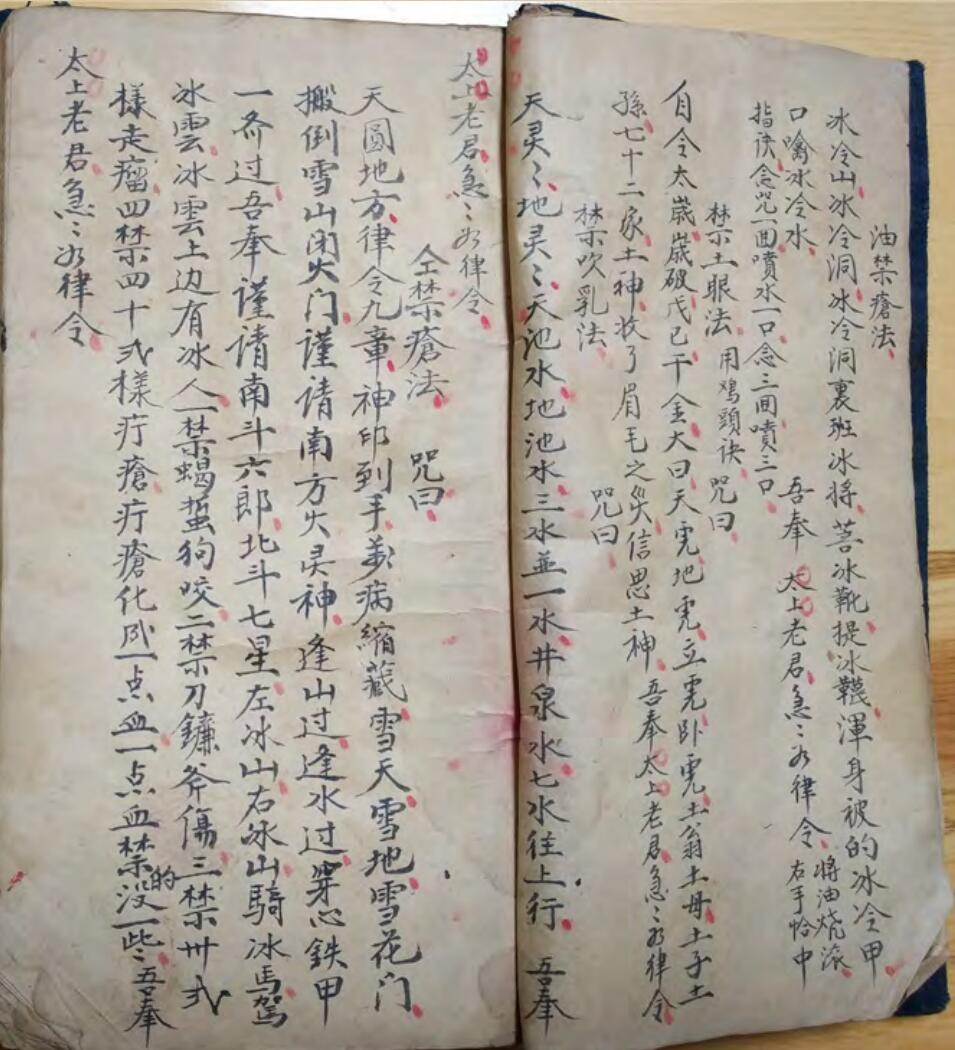 油禁瘡法
冰冷山冰冷洞冰冷洞裏班冰將 冰靴提冰韈渾身被的冰冷甲
口噙冰冷水 吾奉 太上老君急〻如律令 將油燒滾 右手恰中
指訣念咒一面噴水一口念三面噴三口
禁土眼法 用鸡頭訣 咒曰
自令太歲歲破戊己干金大曰天 地 立 卧 土翁土母土子土
孫七十二家土神收了眉毛之災信思土神 吾奉太上老君急〻如律令
禁吹乳法 咒曰
天灵〻地灵〻天池水地池水三水並一水井泉水七水往上行 吾奉
太上老君急〻如律令
仝禁瘡法 咒曰
天圓地方律令九章神印到手 病縮藏雪天雪地雪花门
搬倒雪山闭火门谨请南方火灵神逢山过逢水过穿心鉄甲
一斉过吾奉谨请南斗六郎北斗七星左冰山右冰山騎冰馬駕
冰雲冰雲上边有冰人一禁蝎蜇狗咬二禁刀鐮斧傷三禁卅弍
樣走瘤四禁四十弍樣疔瘡疔瘡化 一点血一点血禁的没一些〻吾奉
太上老君急〻如律令